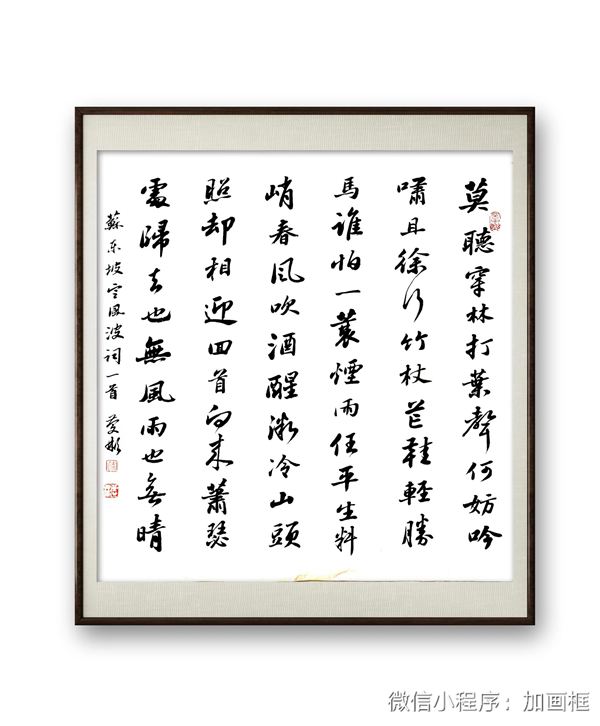 莫聽穿林打葉聲何妨吟
嘯且徐行竹杖芒鞋輕勝
馬誰怕一蓑煙雨任平生料
峭春風吹酒醒微冷山頭
照却相迎回首向来蕭瑟
處歸去也無風雨也無晴
蘇东坡定風波詞一首
微信小程序：加画框